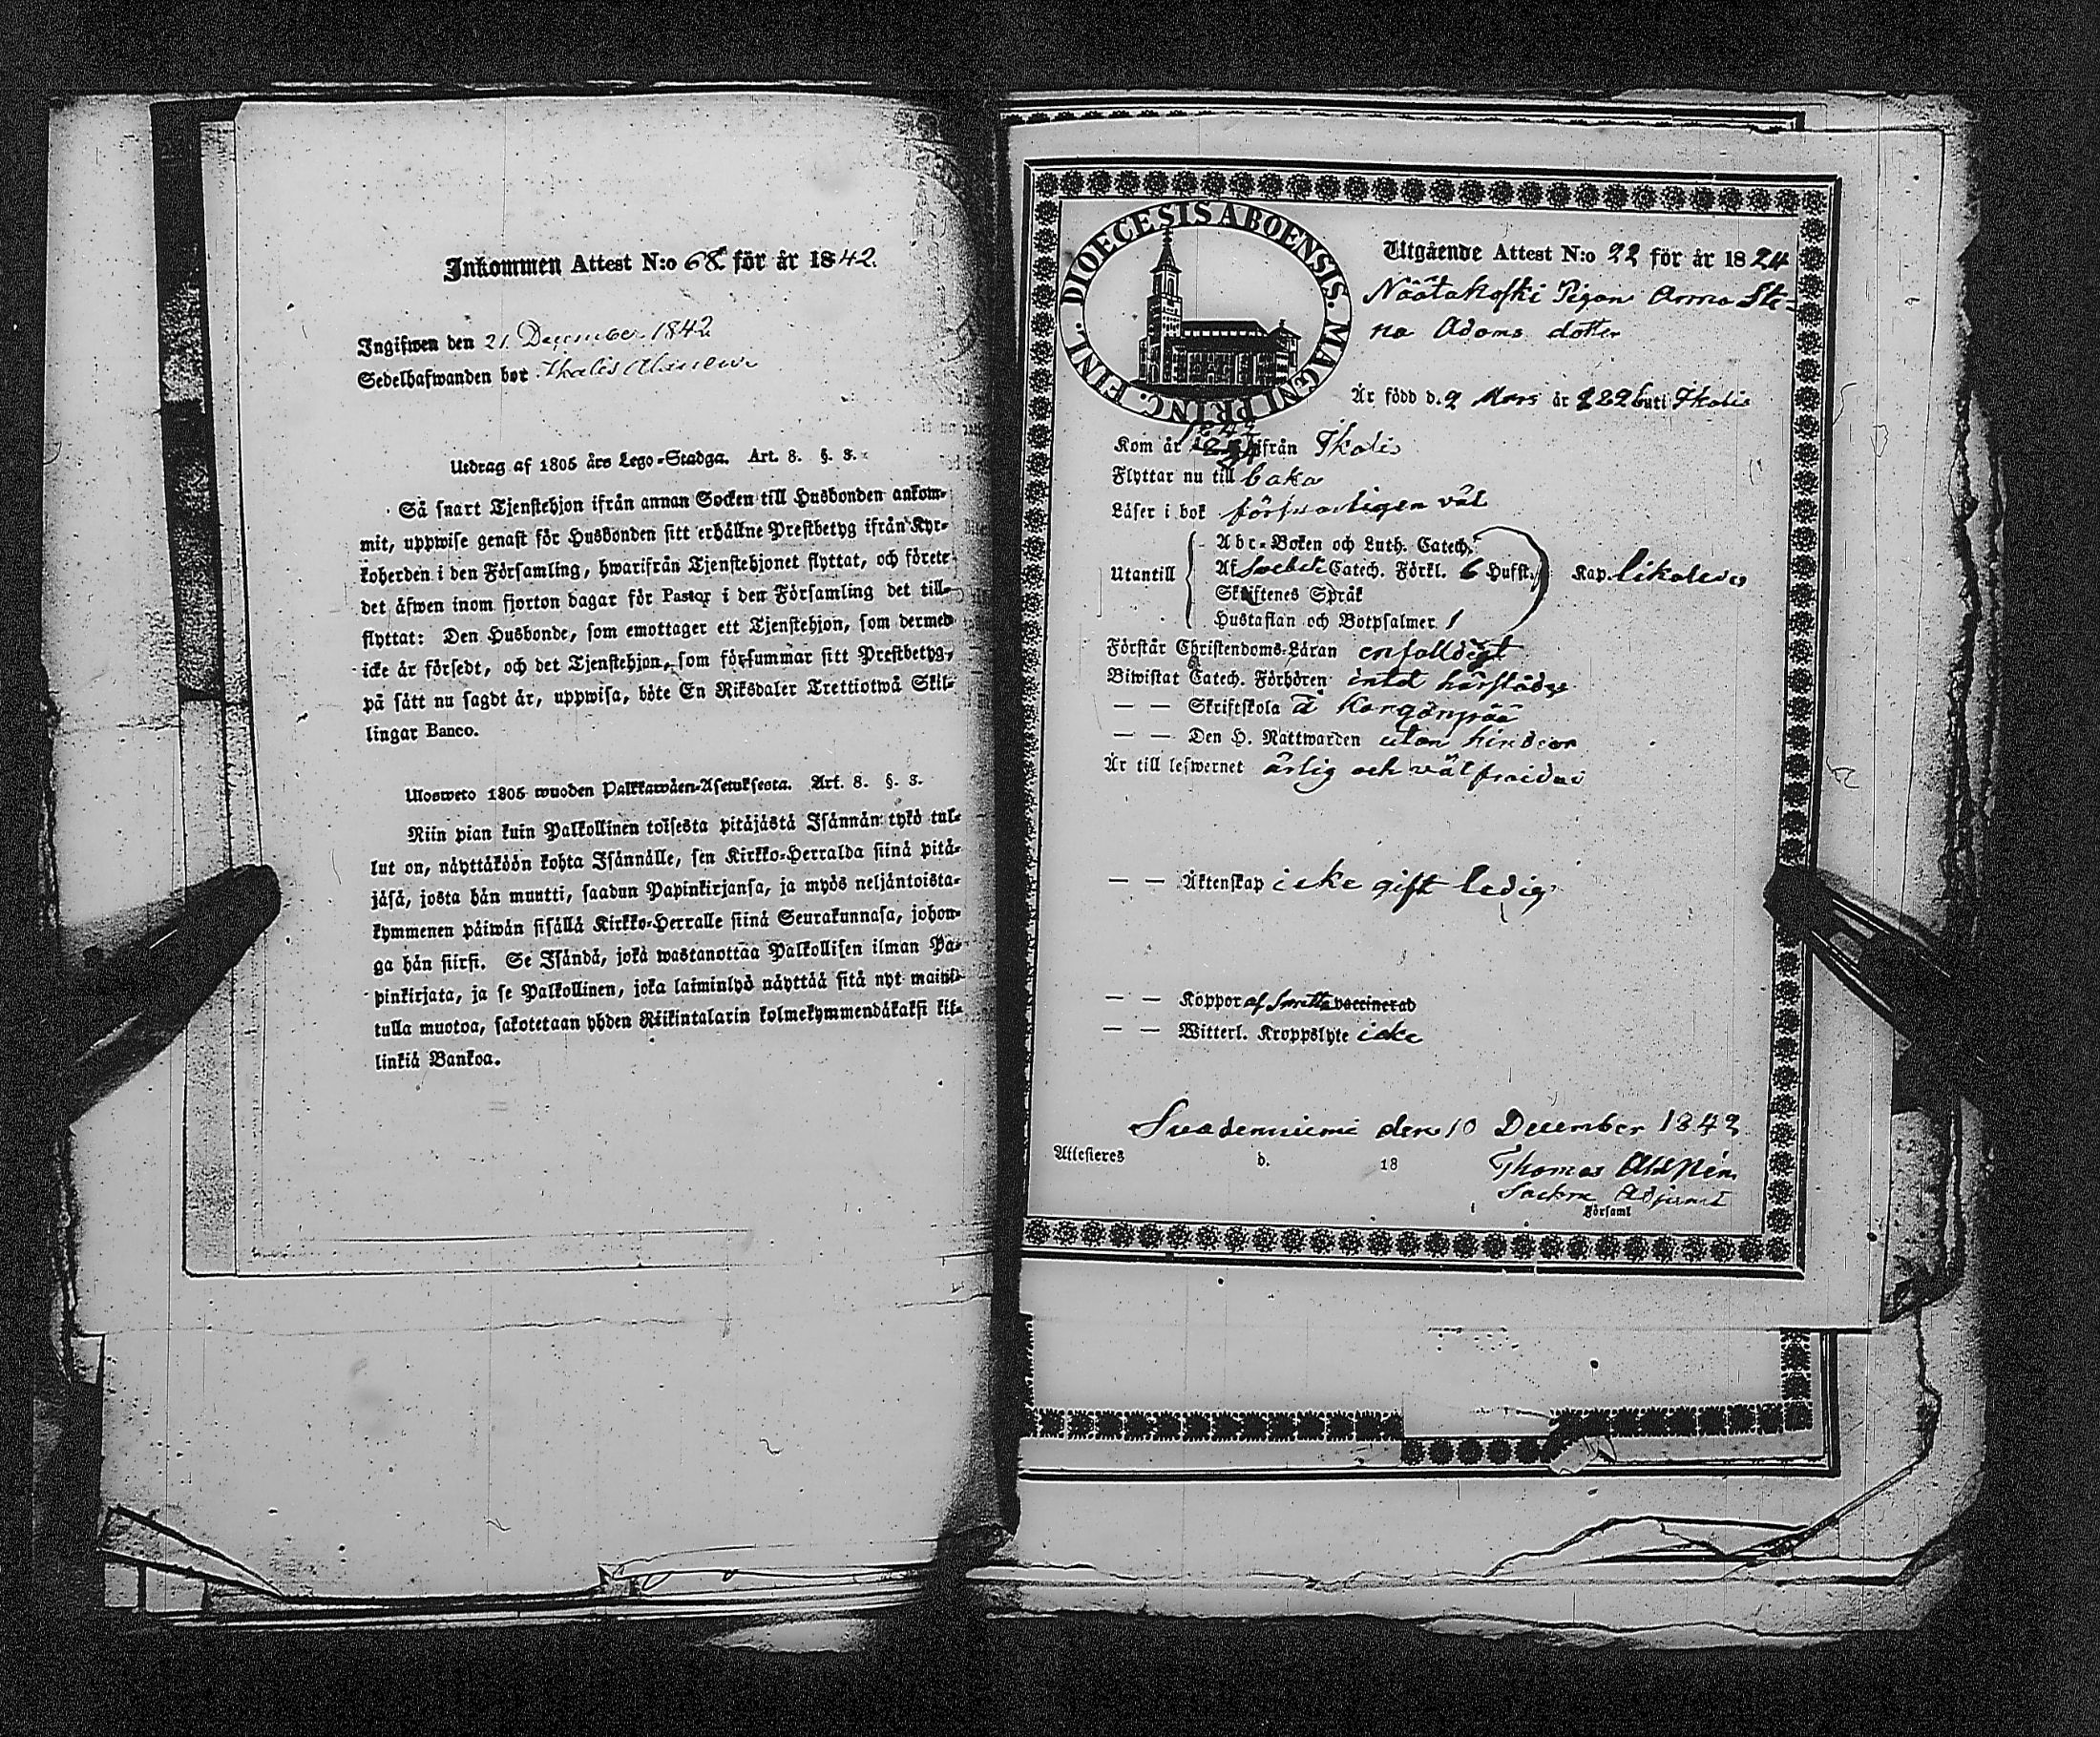 Inkommen Attest N:o 68 för år 1842.
Ingifwen den 21 December 1842
Sedelhafwanden bor Ikalis
Utdrag af 1805 års Lego-Stadga. Art. 8. §. 3.
Så snart Tjenstehjon ifrån annan Socken till Husbonden ankom-
mit, uppwise genast för Husbonden sitt erhållne Prestbetyg ifrån Kyr-
koherden i den Församling, hwarifrån Tjenstehjonet flyttat, och förete
det äfwen inom fjorton dagar för Pastor i den Församling det till-
flyttat: Den Husbonde, som emottager ett Tjenstehjon, som dermed
icke är försedt, och det Tjenstehjon, som försummar sitt Prestbetyg,
på sätt nu sagdt är, uppwisa, böte En Riksdaler Trettiotwå Skil-
lingar Banco.
Ulosweto 1805 wuoden Palkkawäen-Asetuksesta. Art. 8. §. 3.
Niin pian kuin Palkollinen toisesta pitäjästä Isännän tykö tul-
lut on, näyttäköön kohta Isännälle, sen Kirkko-Herralda siinä pitä-
jäsä, josta hän muutti, saadun Papinkirjansa, ja myös neljäntoista-
kymmenen päiwän sisällä Kirkko-Herralle siinä Seurakunnasa, johon-
ga hän siirsi. Se Isändä, joka wastanottaa Palkollisen ilman Pa-
pinkirjata, ja se Palkollinen, joka laiminlyö näyttää sitä nyt mainit-
tulla muotoa, sakotetaan yhden Riikintalarin kolmekymmendäkaksi kil-
linkiä Bankoa.
DIOECESIS ABOENSIS. MAGNI PRINC. FINL.
Utgående Attest N:o 22 för år 1824
Näätäkoski Pigan Anna Sti-
na Adams dotter
Är född d. 2 Mars år 822 uti Ikalis
Kom år 1842 ifrån Ikalis
Flyttar nu till baka
Läser i bok försvarligen väl
Abc-Boken och Luth. Catech.
Utantill Af Svebeli Catech. Förkl. 6 Hufst. Kap. likaledes
Skriftenes Språk
Hustaflan och Botpsalmer 1
Förstår Christendoms-Läran enfalldigt
Biwistat Catech. Förhören intet härstädes
— — Skriftskola i Kangönpää
— — Den H. Nattwarden utan hinder
Är till lefwernet ärlig och välfräidad
— — Äktenskap icke gift ledig
— — Koppor af Smitta vaccinerad
— — Witterl. Kroppslyte icke
Suodenniemi den 10 December 1842
Attesteres d. 18
Thomas
Sockne Adjunct
Församl